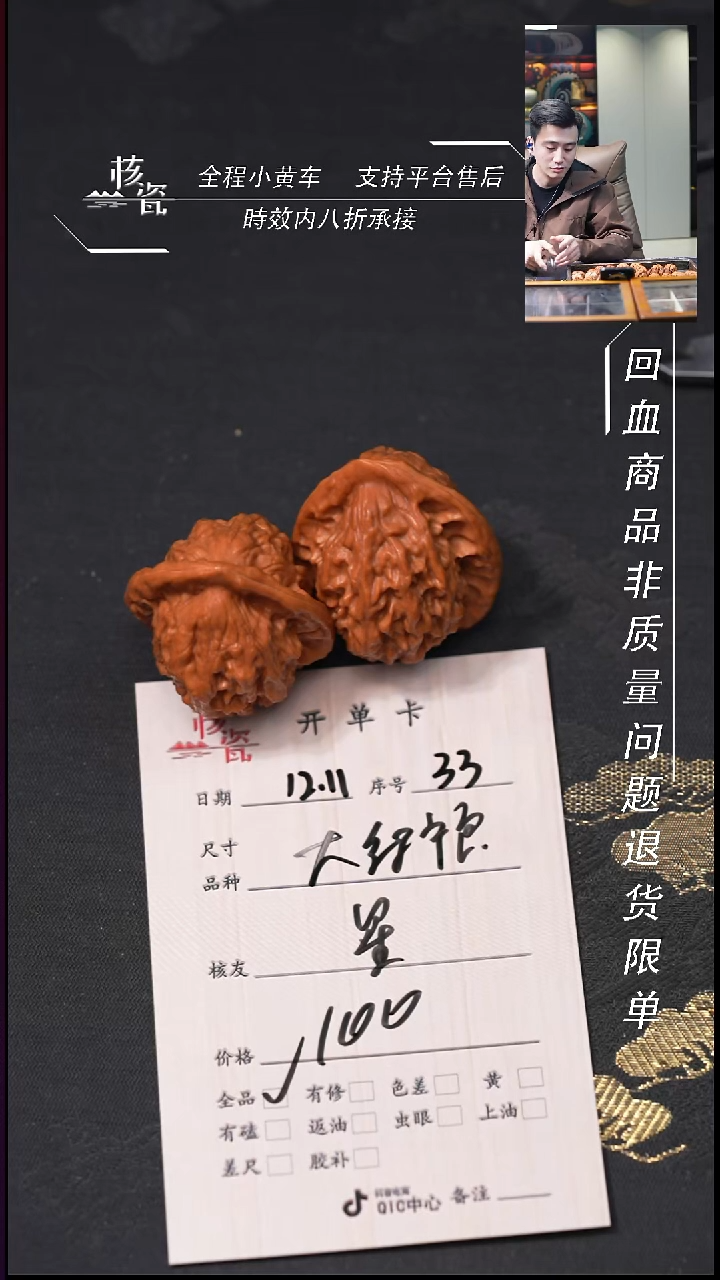 核瓷
全程小黄车 支持平台售后
時效内八折承接
回血商品非质量问题退货限单
核瓷
开单卡
日期 12.11 序号 33
尺寸
品种 大红宁
核友 星
价格 100
全品 有修 色差 黄
有磕 返油 虫眼 上油
差尺 胶补
抖音电商
QIC中心 备注